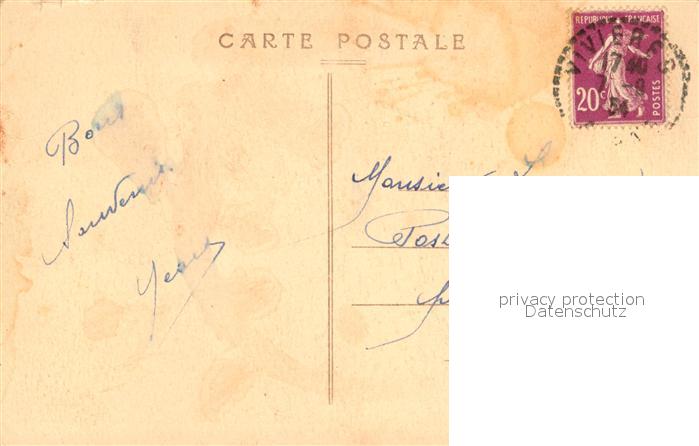 CARTE POSTALE
REPUBLIQUE FRANÇAISE
20c
POSTES
VIVIERS
17
Bon
Souvenir
Jean
Monsieur
Pos
privacy protection
Datenschutz